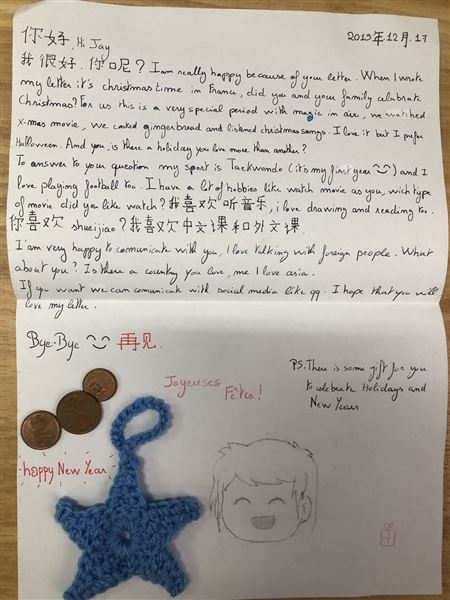 你好, Hi Jay
2019年12月.17
我很好. 你呢? I am really happy because of your letter. When I wrote
my letter it's christmas time in France, did you and your family celebrate
Christmas? For us this is a very special period with magic in air, we watched
x-mas movie, we cooked gingerbread and listened christmas songs. I love it but I prefer
Halloween. And you, is there a holiday you love more than another?
To answer to your question my sport is Taekwondo (it's my first year) and I
love playing football too. I have a lot of hobbies like watch movie as you, wich type
of movie did you like watch? 我喜欢听音乐, i love drawing and reading too.
你喜欢 shueijiao? 我喜欢中文课和外文课.
I am very happy to comunicate with you, I love talking with foreign people. What
about you? Is there a country you love, me I love asia.
If you want we can comunicate with social media like qq. I hope that you will
love my letter.
Bye-Bye 再见.
PS: There is some gift for you
to celebrate Holidays and
New Years
Joyeuses
Fêtes!
happy New Year